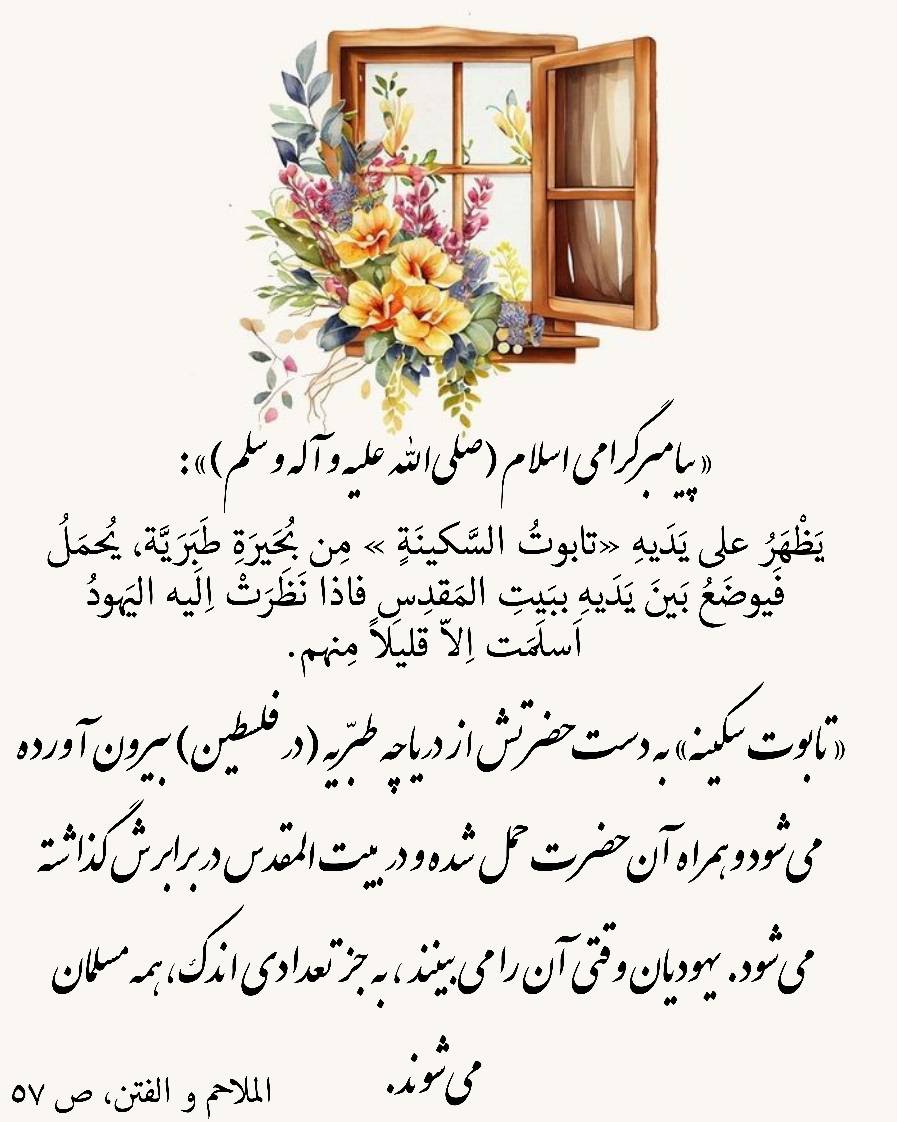 «پیامبر گرامی اسلام (صلی الله علیه و آله و سلم)»:
يَظْهَرُ على يَدَيهِ «تابوتُ السَّكينَةِ » مِن بُحَيرَةِ طَبَرَيَّة، يُحمَلُ
فَيوضَعُ بَينَ يَدَيهِ ببَيتِ المَقدِسِ فاذا نَظَرَتْ اِلَيه اليَهودُ
اَسلَمَت اِلاّ قليلاً مِنهم.
«تابوت سکینه» به دست حضرتش از دریاچه طبرّیه (در فلسطین) بیرون آورده
می شود و همراه آن حضرت حمل شده و در بیت المقدس در برابرش گذاشته
می شود. یهودیان وقتی آن را می بینند، به جز تعدادی اندک، همه مسلمان
می شوند.
الملاحم و الفتن، ص ۵۷